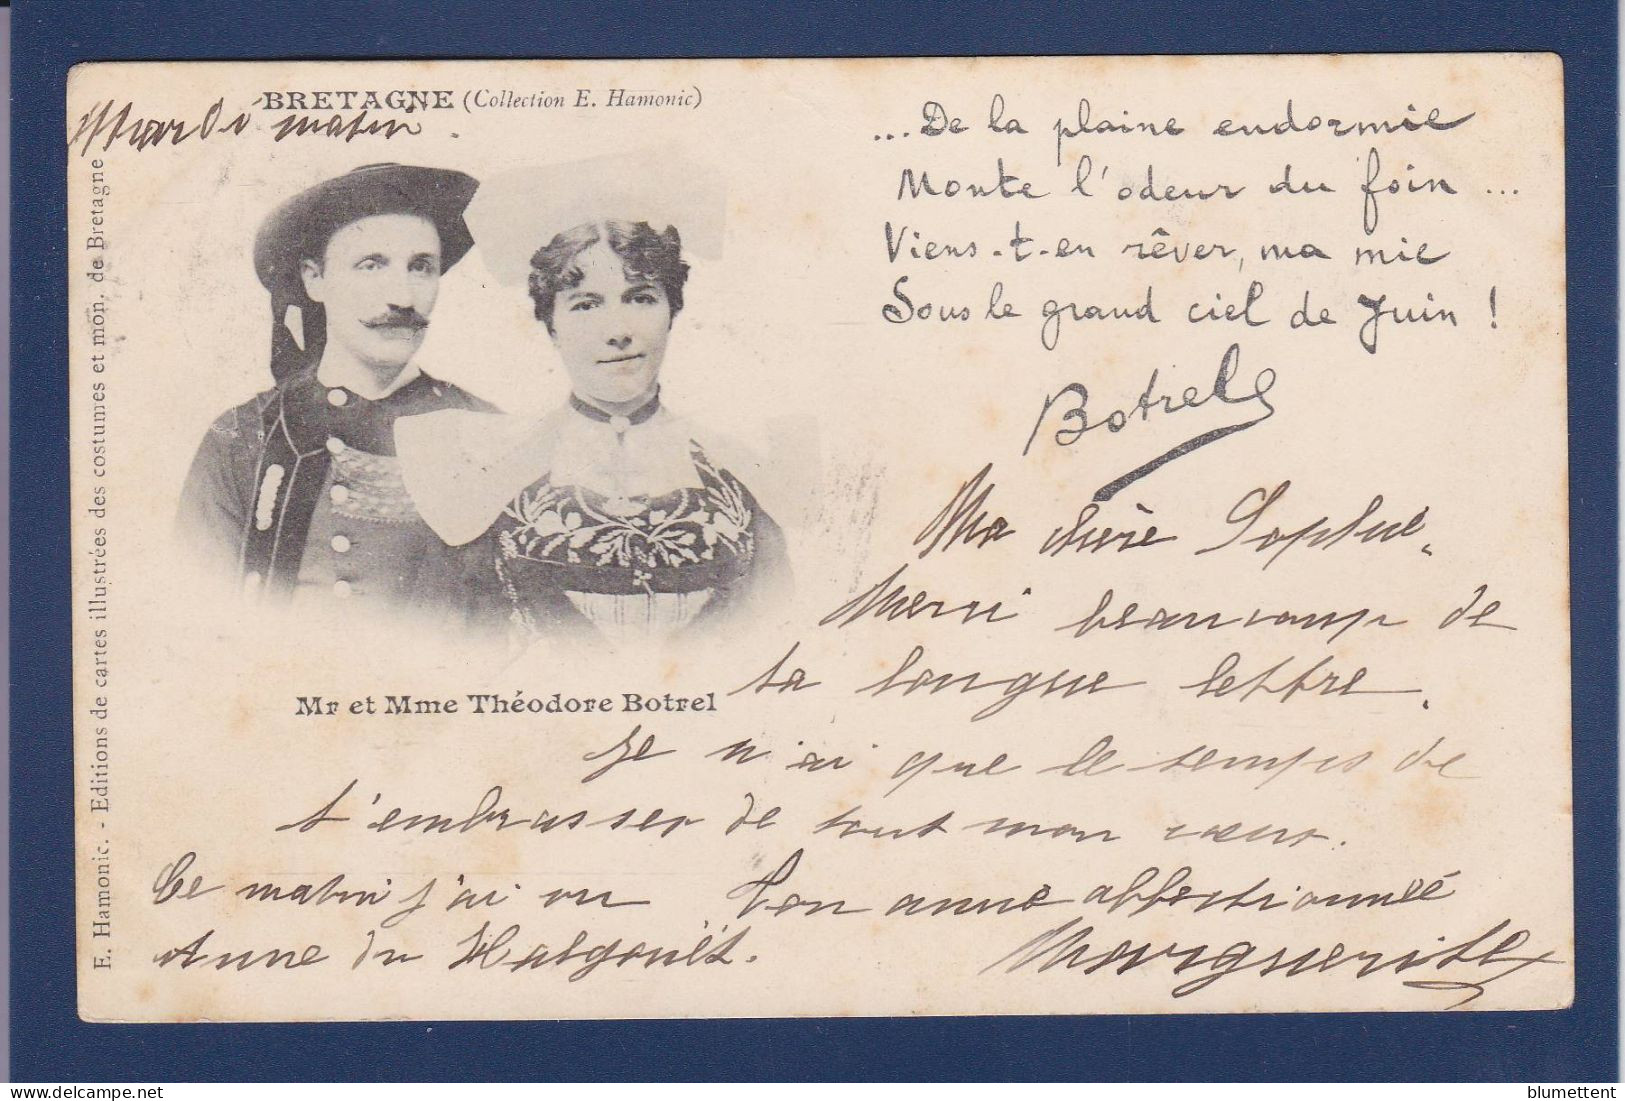 BRETAGNE (Collection E. Hamonic)
Mardi matin.
E. Hamonic. - Editions de cartes illustrées des costumes et mon. de Bretagne
Mr et Mme Théodore Botrel
...De la plaine endormie
Monte l'odeur du foin ...
Viens-t-en rêver, ma mie
Sous le grand ciel de Juin !
Botrel
Ma chère Sophie
Merci beaucoup de
ta longue lettre.
Je n'ai que le temps de
t'embrasser de tout mon cœur.
Ton amie affectionnée
Marguerite
Ce matin j'ai vu
Anne du Halgouët.
blumettent